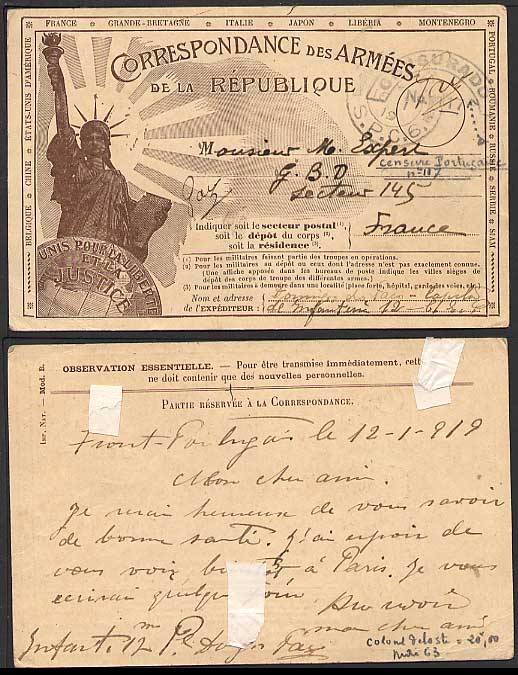 FRANCE GRANDE-BRETAGNE ITALIE JAPON LIBÉRIA MONTENEGRO
BELGIQUE CHINE ÉTATS-UNIS D'AMÉRIQUE
PORTUGAL ROUMANIE RUSSIE SERBIE SIAM
CORRESPONDANCE DES ARMÉES
DE LA RÉPUBLIQUE
S.P.C. 6
Monsieur M. Expert
censure Portugaise
n° 117
G.B.D
Secteur 145
France
UNIS POUR LA LIBERTÉ
ET LA
JUSTICE
Indiquer soit le secteur postal (1),
soit le dépôt du corps (2),
soit la résidence (3).
(1) Pour les militaires faisant partie des troupes en opérations.
(2) Pour les militaires au dépôt ou ceux dont l'adresse n'est pas exactement connue.
Une affiche apposée dans les bureaux de poste indique les villes sièges
de dépôt des corps de troupe des différentes armes.
(3) Pour les militaires à demeure dans une localité (place forte, hôpital, garde des voies, etc.)
Nom et adresse
de l'EXPÉDITEUR :
Imp. Nat. — Mod. B.
OBSERVATION ESSENTIELLE. — Pour être transmise immédiatement, cett
ne doit contenir que des nouvelles personnelles.
PARTIE RÉSERVÉE À LA CORRESPONDANCE.
Front-Portugais le 12-1-919
Mon cher ami.
Je suis heureuse de vous savoir
de bonne santé. J'ai espoir de
vous voir à Paris. Je vous
écrirai quelque
Au revoir
mon cher ami
Infant. 12